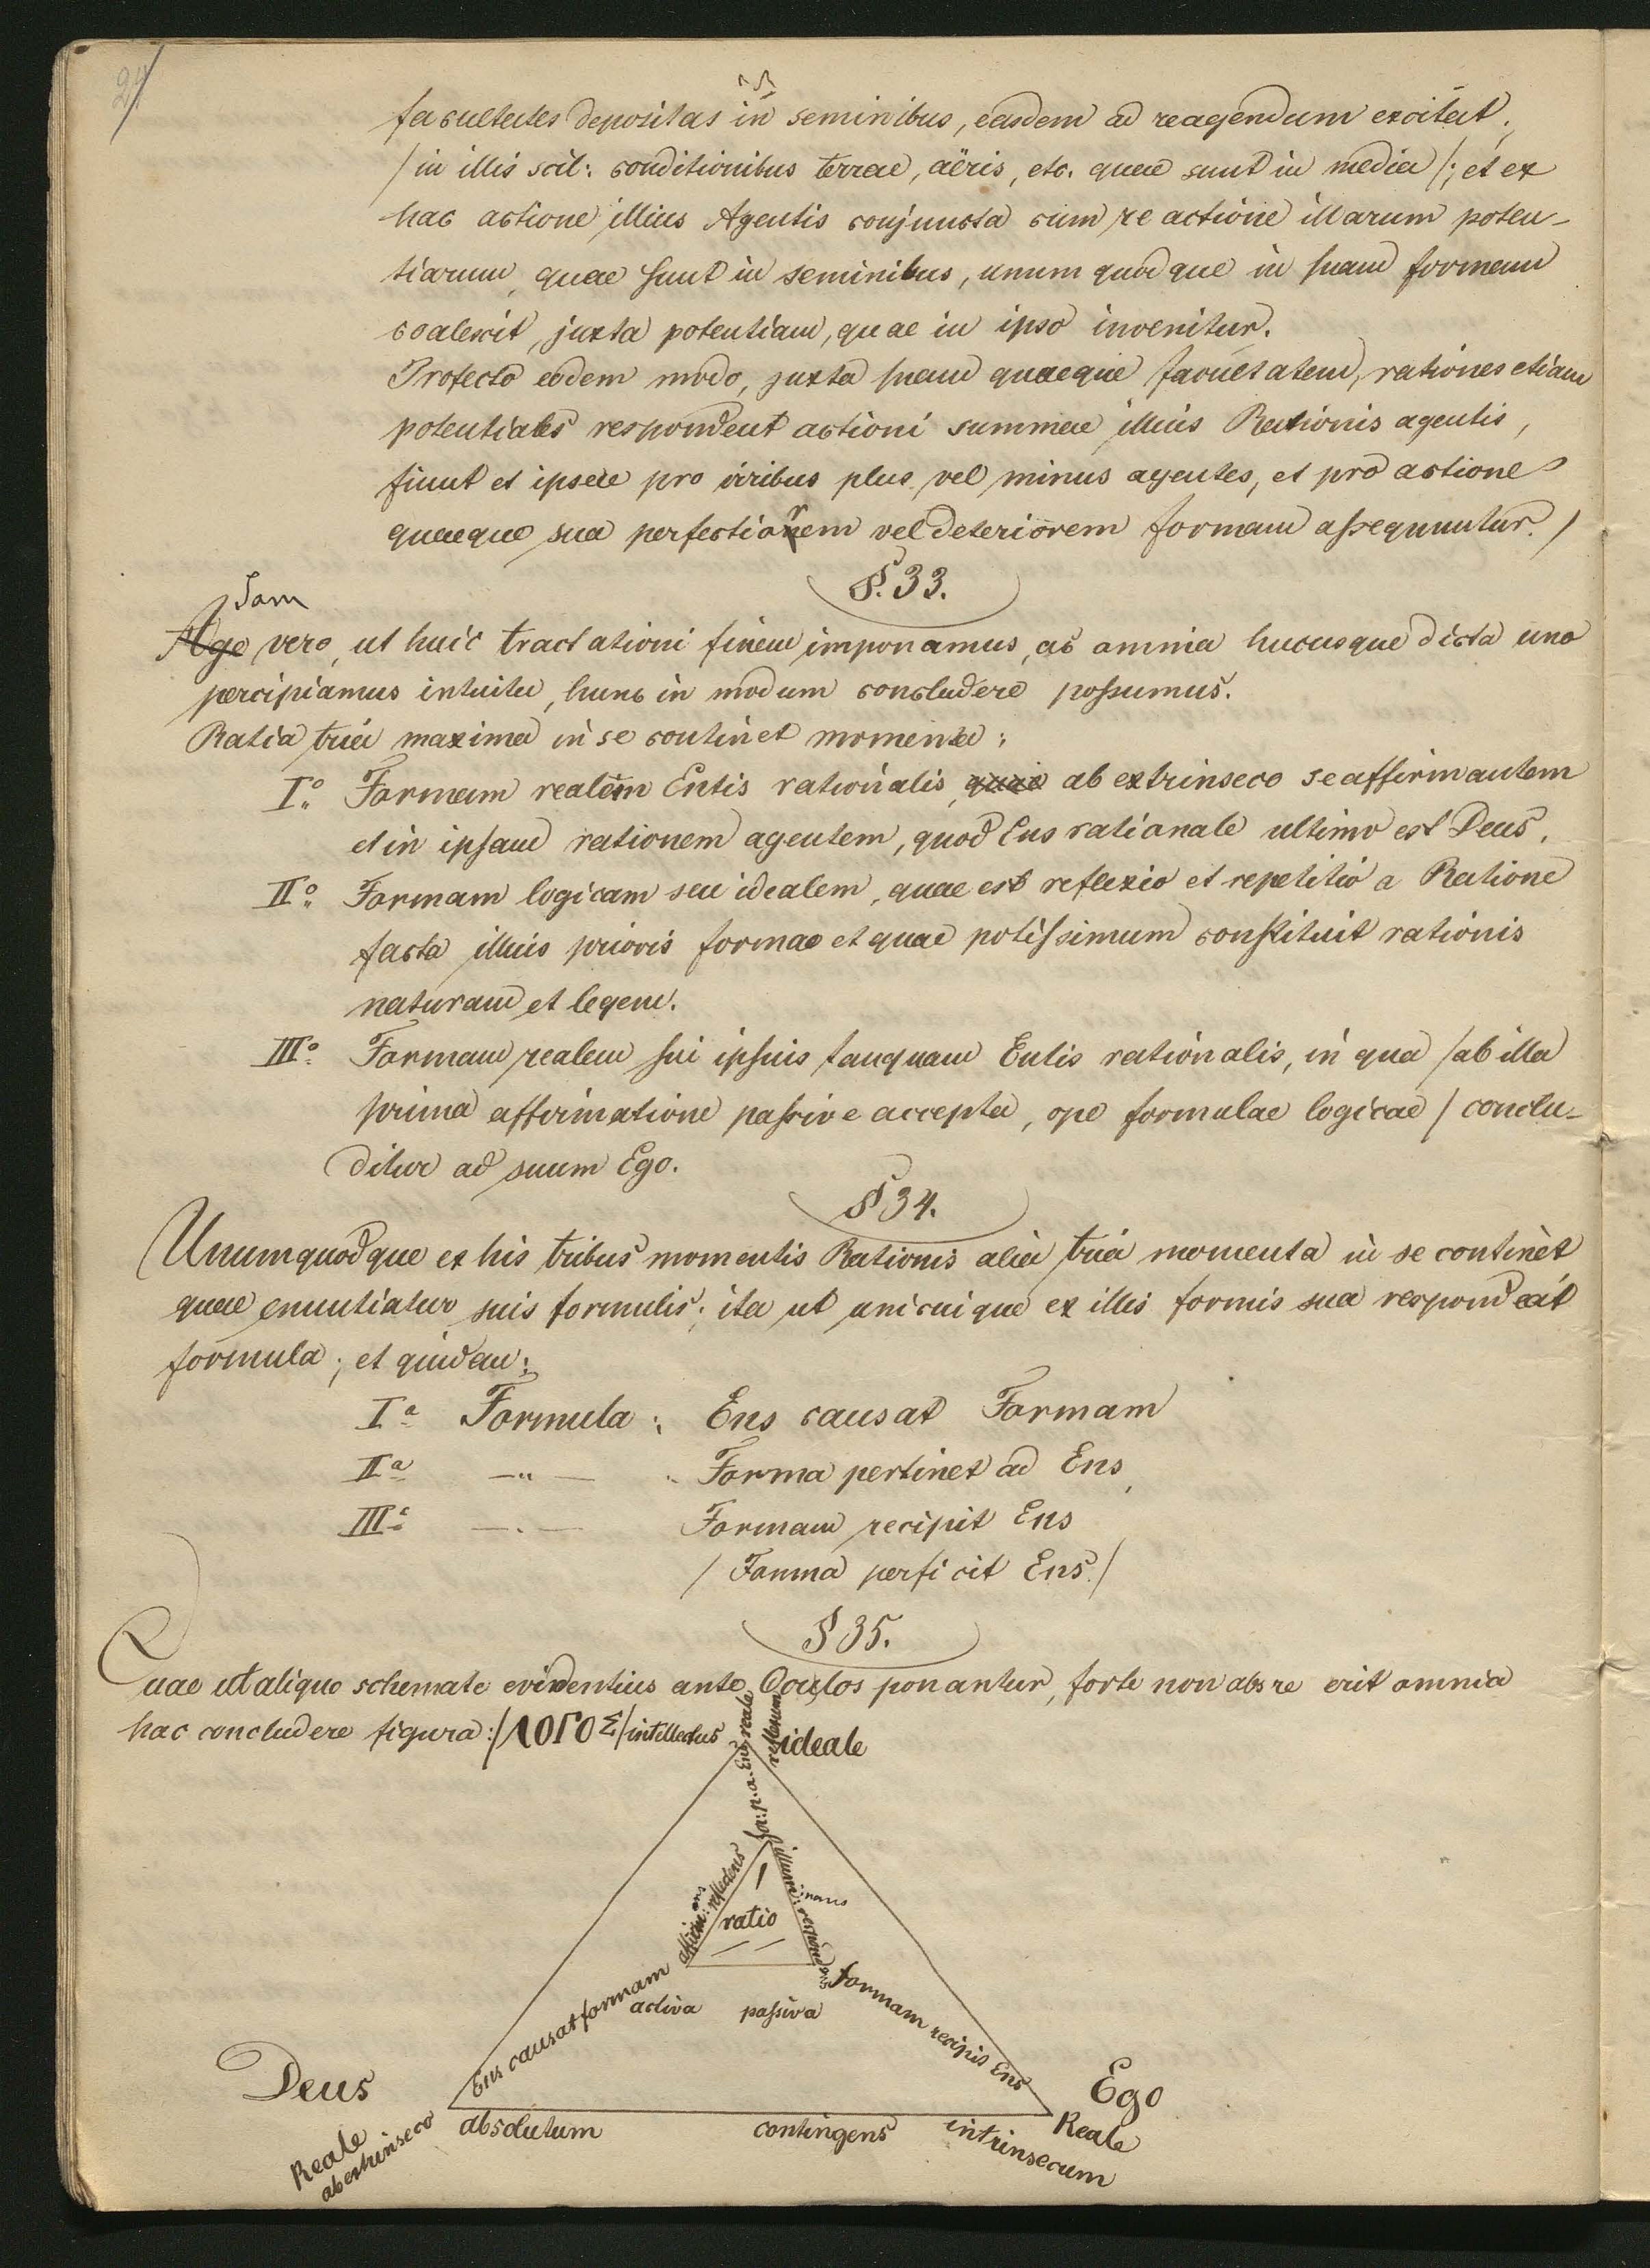 27
facultates depositas in seminibus, easdem ad reagendum excitat,
/in illis scil: conditionibus terrae, aëris, etc. quae sunt in media/; et ex
hac actione illius Agentis conjuncta cum re actione illarum poten-
tiarum, quae sunt in seminibus, unum quod que in suam formam
coalescit, juxta potentiam, quae in ipso invenitur.
Profecto eodem modo, juxta suam quaeque facultatem, rationes etiam
potentiales respondent actioni summae illius Rationis agentis,
fiunt et ipsae pro viribus plus vel minus agentes, et pro actione
quaeque sua perfectiorem vel deteriorem formam assequuntur./
§. 33.
Jam
Age vero, ut huic tractationi finem imponamus, ac omnia hucusque dicta uno
percipiamus intuitu, hunc in modum concludere possumus.
Ratio tria maxima in se continet momenta:
I.º Formam realem Entis rationalis, quae ab extrinseco se affirmantem
et in ipsam rationem agentem, quod Ens rationale ultimo est Deus.
II.º Formam logicam seu idealem, quae est reflexio et repetitio a Ratione
facta illius prioris formae et quae potissimum constituit rationis
naturam et legem.
III.º Formam realem sui ipsius tanquam Entis rationalis, in qua /ab illa
prima affirmatione passive accepta, ope formulae logicae/ conclu-
ditur ad suum Ego.
§ 34.
Unumquodque ex his tribus momentis Rationis alia tria momenta in se continet
quae enuntiatur suis formulis; ita ut unicuique ex illis formis sua respondeat
formula; et quidem:
I.a Formula: Ens causat Formam
II.a —"— Forma pertinet ad Ens,
III.a —.— Formam recipit Ens
/Forma perficit Ens./
§ 35.
Quae ut aliquo schemate evidentius ante Oculos ponantur, forte non abs re erit omnia
hac concludere figura: /ΛΟΓΟΣ/ intellectus ideale
for: p. a. Ens reale
reflexum
affirm: reflectens
ans
illumi: nans
respondens
ratio
activa passiva
Ens causat formam
formam recipit Ens
Deus
Ego
Reale
ab extrinseco
absolutum contingens intrinsecum
Reale